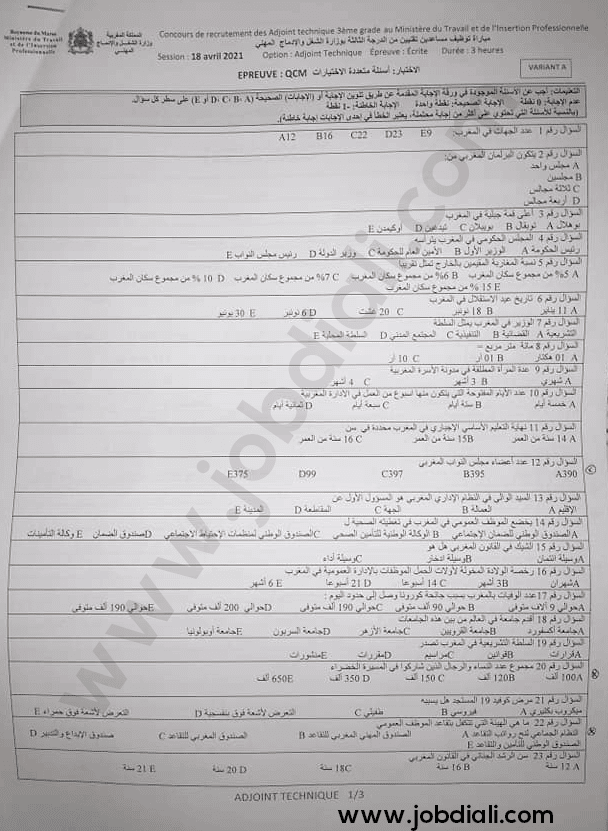 Royaume du Maroc
Ministère du Travail
et de l'Insertion
Professionnelle
المملكة المغربية
وزارة الشغل والإدماج
المهني
Concours de recrutement des Adjoint technique 3ème grade au Ministère du Travail et de l'Insertion Professionnelle
مباراة توظيف مساعدين تقنيين من الدرجة الثالثة بوزارة الشغل والإدماج المهني
Session : 18 avril 2021 Option : Adjoint Technique Épreuve : Écrite Durée : 3 heures
EPREUVE : QCM الاختبار: أسئلة متعددة الاختيارات
VARIANT A
التعليمات: أجب عن الأسئلة الموجودة في ورقة الإجابة المقدمة عن طريق تلوين الإجابة أو (الإجابات) الصحيحة (A -B -C -D أو E) على سطر كل سؤال.
عدم الإجابة: 0 نقطة الإجابة الصحيحة: نقطة واحدة الإجابة الخاطئة: 1- نقطة
(بالنسبة للأسئلة التي تحتوي على أكثر من إجابة محتملة، يعتبر الخطأ في إحدى الإجابات إجابة خاطئة).
السؤال رقم 1 عدد الجهات في المغرب: A12 B16 C22 D23 E9
السؤال رقم 2 يتكون البرلمان المغربي من:
A مجلس واحد
B مجلسين
C ثلاثة مجالس
D أربعة مجالس
السؤال رقم 3 أعلى قمة جبلية في المغرب
A بوهلال B توبقال C بويبلان D تيدغين E أوكيمدن
السؤال رقم 4 المجلس الحكومي في المغرب يترأسه
A رئيس الحكومة B الوزير الأول C الأمين العام للحكومة D وزير الدولة E رئيس مجلس النواب
السؤال رقم 5 نسبة المغاربة المقيمين بالخارج تمثل تقريبا
A 5% من مجموع سكان المغرب B 6% من مجموع سكان المغرب C 7% من مجموع سكان المغرب D 10 % من مجموع سكان المغرب
E 15 % من مجموع سكان المغرب
السؤال رقم 6 تاريخ عيد الاستقلال في المغرب
A 11 يناير B 18 نونبر C 20 غشت D 6 نونبر E 30 يونيو
السؤال رقم 7 الوزير في المغرب يمثل السلطة
A التشريعية B القضائية C التنفيذية D المجتمع المدني E السلطة المحلية
السؤال رقم 8 مائة متر مربع =
A 01 هكتار B 01 آر C 10 آر
السؤال رقم 9 عدة المرأة المطلقة في مدونة الأسرة المغربية
A شهري B 3 أشهر C 4 أشهر
السؤال رقم 10 عدد الأيام المفتوحة التي يتكون منها أسبوع من العمل في الادارة المغربية
A خمسة أيام B ستة أيام C سبعة أيام D ثمانية أيام
السؤال رقم 11 نهاية التعليم الأساسي الإجباري في المغرب محددة في سن
A 14 سنة من العمر B 15 سنة من العمر C 16 سنة من العمر
السؤال رقم 12 عدد أعضاء مجلس النواب المغربي
A390 B395 C397 D99 E375
السؤال رقم 13 السيد الوالي في النظام الإداري المغربي هو المسؤول الأول عن
A الإقليم B العمالة C الجهة D المقاطعة E المدينة
السؤال رقم 14 يخضع الموظف العمومي في المغرب في تغطيته الصحية ل
A الصندوق الوطني للضمان الإجتماعي B الوكالة الوطنية للتأمين الصحي C الصندوق الوطني لمنظمات الإحتياط الاجتماعي D صندوق الضمان E وكالة التأمينات
السؤال رقم 15 الشيك في القانون المغربي هل هو
A وسيلة ائتمان B وسيلة ادخار C وسيلة أداء
السؤال رقم 16 رخصة الولادة المخولة لأولات الحمل الموظفات بالإدارة العمومية في المغرب
A شهران B 3 أشهر C 14 أسبوعا D 21 أسبوعا E 6 أشهر
السؤال رقم 17 عدد الوفيات بالمغرب بسبب جائحة كورونا وصل إلى حدود اليوم :
A حوالي 9 آلاف متوفى B حوالي 90 ألف متوفى C حوالي 190 ألف متوفى D حوالي 200 ألف متوفى E حوالي 190 ألف متوفى
السؤال رقم 18 أقدم جامعة في العالم من بين هذه الجامعات
A جامعة أكسفورد B جامعة القرويين C جامعة الأزهر D جامعة السربون E جامعة أوبولونيا
السؤال رقم 19 السلطة التشريعية في المغرب تصدر
A قرارات B قوانين C مراسيم D مقررات E منشورات
السؤال رقم 20 مجموع عدد النساء والرجال الذين شاركوا في المسيرة الخضراء
A 100 ألف B 120 ألف C 150 ألف D 350 ألف E 650 ألف
السؤال رقم 21 مرض كوفيد 19 المستجد هل يسببه
A ميكروب بكتيري B فيروسي C طفيلي D التعرض لأشعة فوق بنفسجية E التعرض لأشعة فوق حمراء
السؤال رقم 22 ما هي الهيئة التي تتكفل بتقاعد الموظف العمومي
A النظام الجماعي لمنح رواتب التقاعد B الصندوق المهني المغربي للتقاعد C الصندوق المغربي للتقاعد D صندوق الإيداع والتدبير
E الصندوق الوطني للتأمين والتقاعد
السؤال رقم 23 سن الرشد الجنائي في القانون المغربي
A 12 سنة B 16 سنة C 18 سنة D 20 سنة E 21 سنة
ADJOINT TECHNIQUE 1/3
www.jobdiali.com
www.jobdiali.com